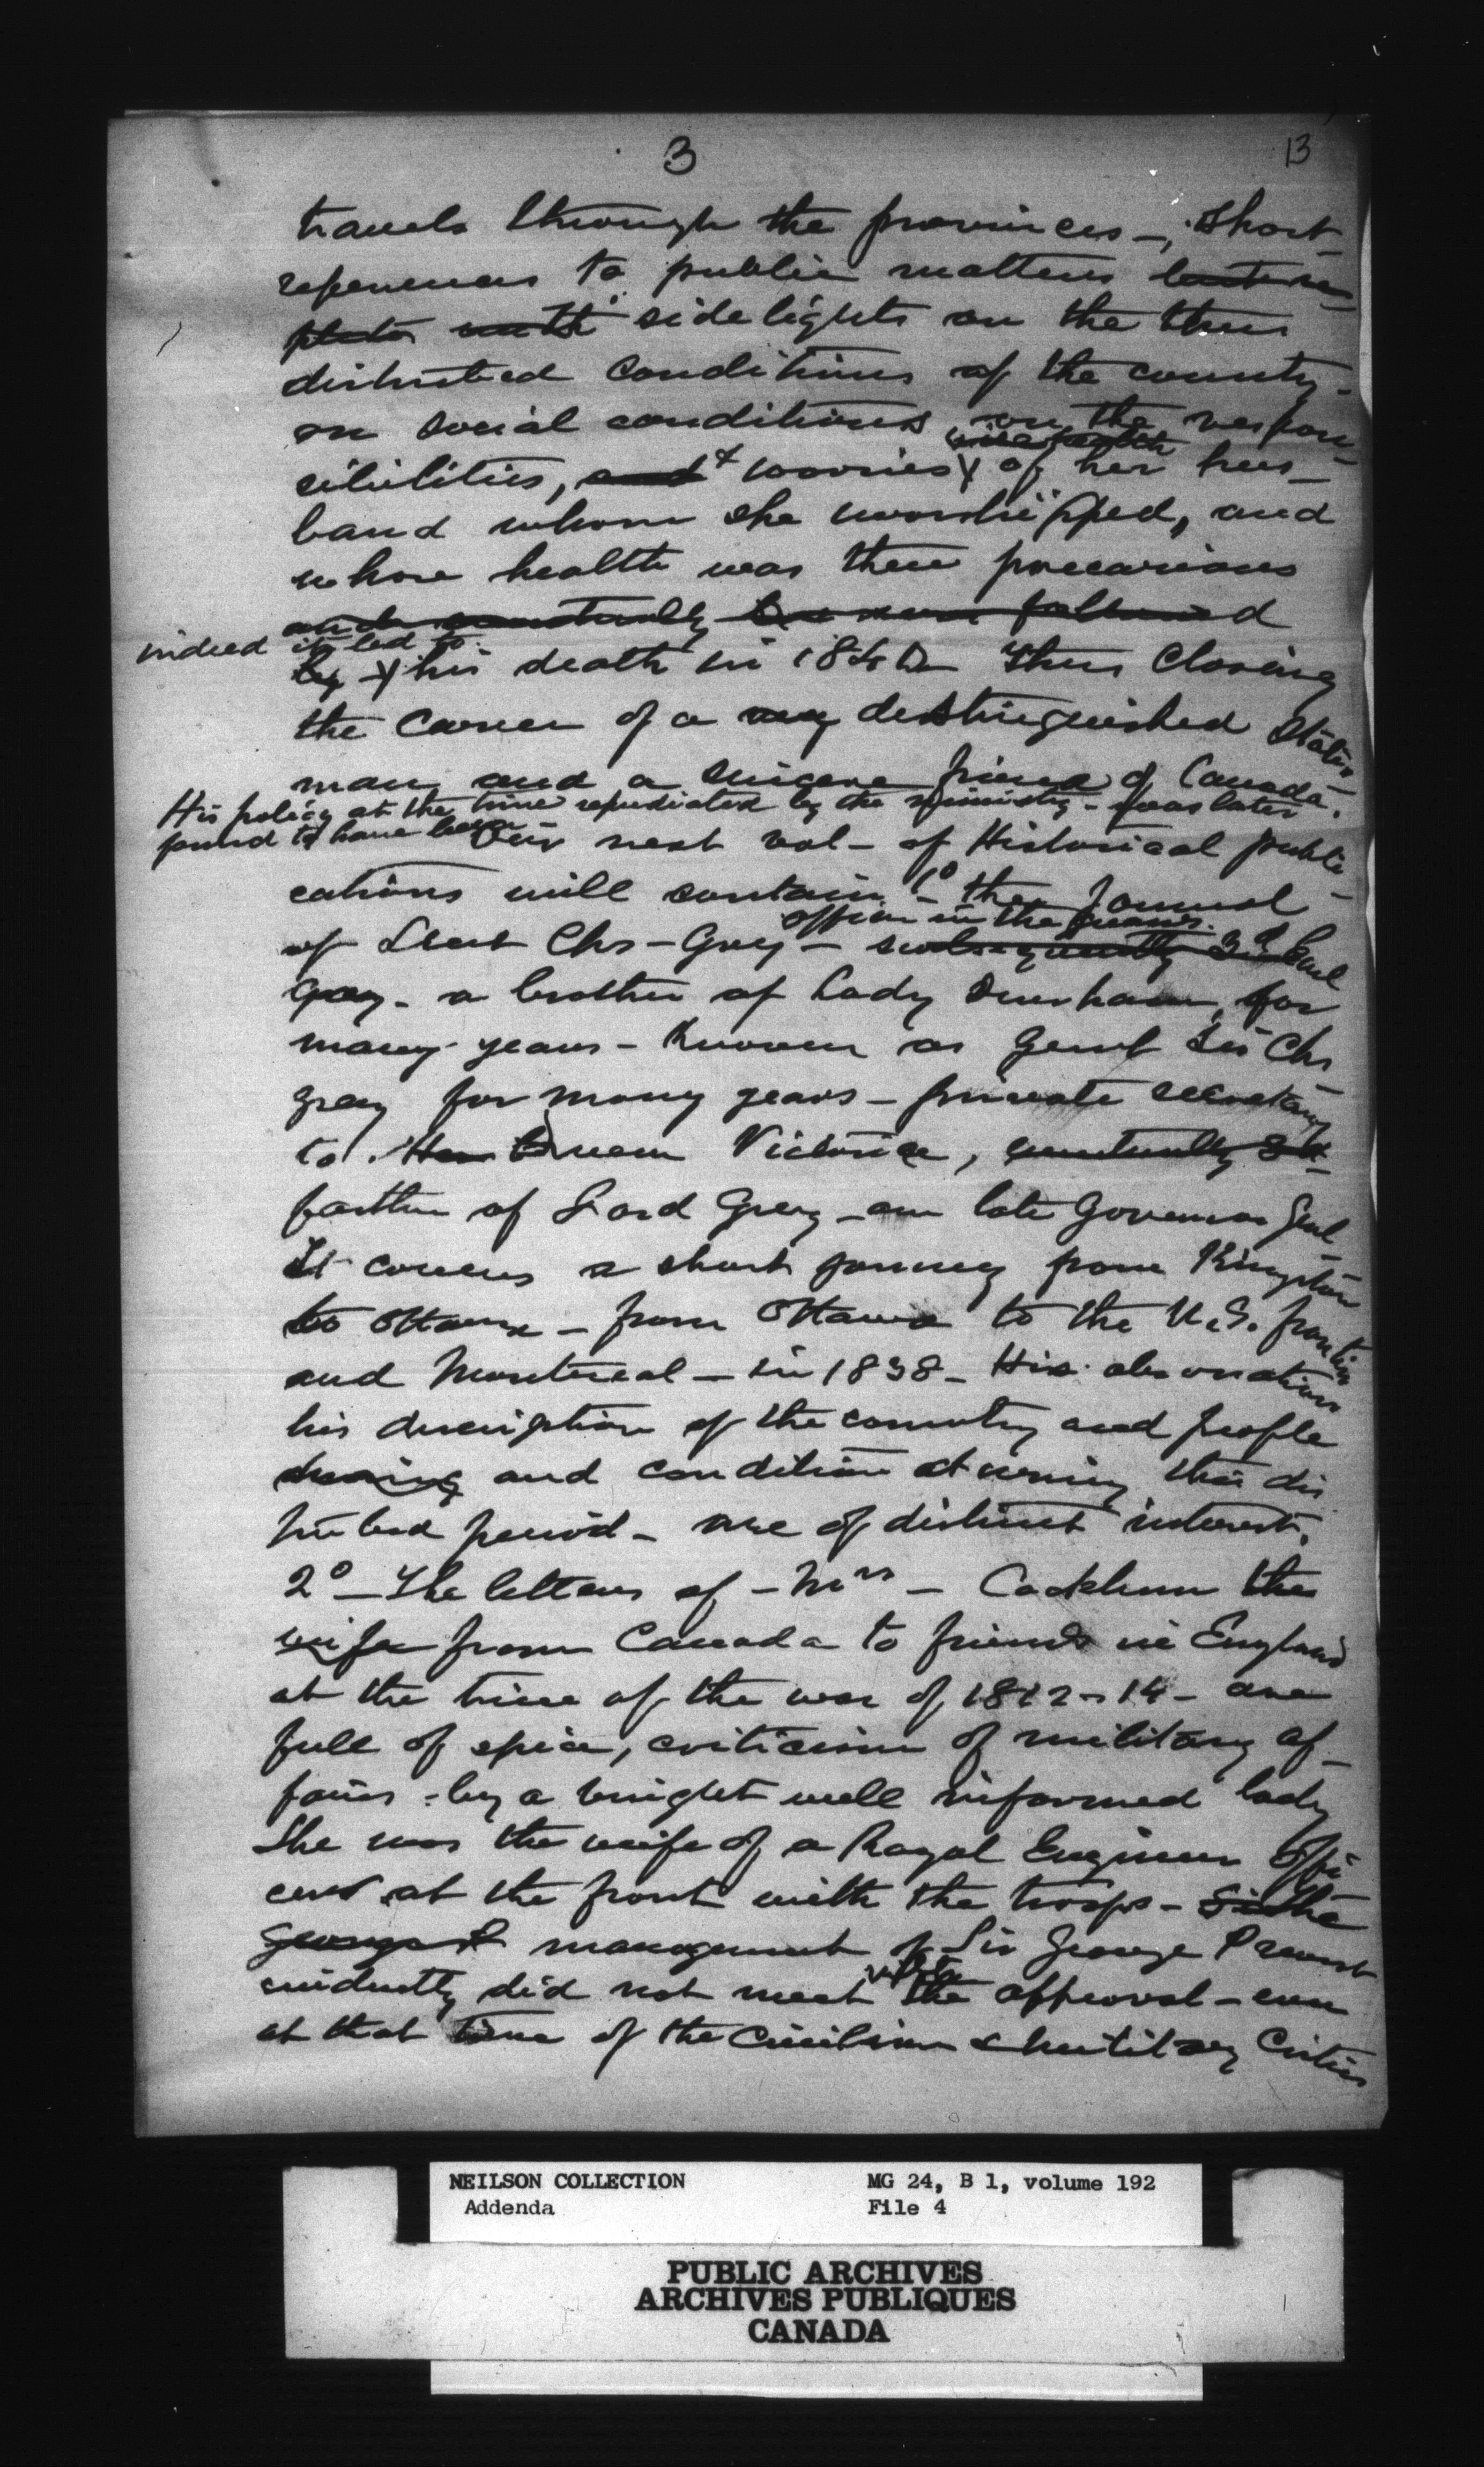 3
13
travels through the provinces -; short
references to public matters but re
plete with side lights on the then
disturbed conditions of the country -
on social conditions on the respon-
sibilities, and & worries of her hus-
band whom she worshipped, and
whose health was then precarious
and eventually followed
indeed it led to
by his death in 1840 thus closing
the career of a very distinguished States
man and a sincere friend of Canada.
His policy at the time repudiated by the ministry - was later
found to have been
Our next vol - of Historical publi-
cations will contain 1o the Journal
officer in the guards.
of Lieut Chs - Grey - subsequently 3d Earl
Grey - a brother of Lady Durham, for
many years - known as Genl Sir Chs
Grey for many years - private secretary
to Her Queen Victoria, eventually
father of Lord Grey - our late Governor Genl -
It covers a short journey from Kingston
to Ottawa - from Ottawa to the U.S. frontier
and Montreal - in 1838 - His observations
his description of the country and people
during and condition during this dis
turbed period - are of distinct interest.
2o - The letters of - Mrs - Cockburn the
wife from Canada to friends in England
at the time of the war of 1812-14 - are
full of spice, criticism of military af-
fairs - by a bright well informed lady
She was the wife of a Royal Engineer offi
cer at the front with the troops - the
George P management of Sir George Prevost
with
evidently did not meet the approval - even
at that time of the civilian & military critics
NEILSON COLLECTION MG 24, B 1, volume 192
Addenda File 4
PUBLIC ARCHIVES
ARCHIVES PUBLIQUES
CANADA